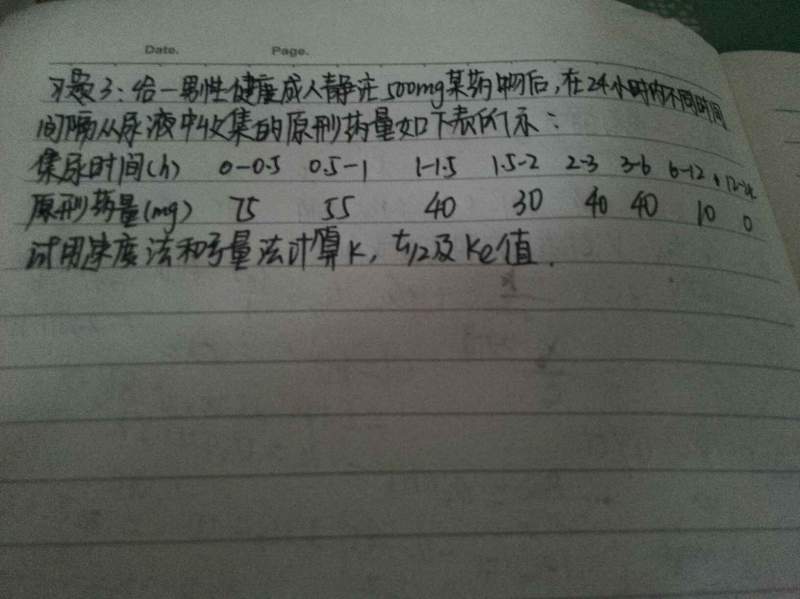 Date. Page.
习题3：给一男性健康成人静注500mg某药物后，在24小时内不同时间
间隔从尿液中收集的原形药量如下表所示：
集尿时间(h) 0-0.5 0.5-1 1-1.5 1.5-2 2-3 3-6 6-12 12-24
原形药量(mg) 75 55 40 30 40 40 10 0
试用速度法和亏量法计算K，t1/2及Ke值.